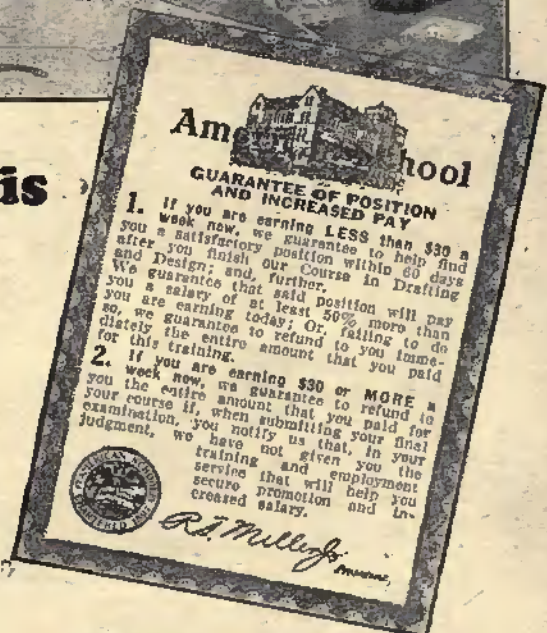 is
Ame hool
GUARANTEE OF POSITION
AND INCREASED PAY
1. If you are earning LESS than $30 a
week now, we guarantee to help find
you a satisfactory position within 60 days
after you finish our Course in Drafting
and Design; and, further,
We guarantee that said position will pay
you a salary of at least 50% more than
you are earning today; Or, failing to do
so, we guarantee to refund to you imme-
diately the entire amount that you paid
for this training.
2. If you are earning $30 or MORE a
week now, we guarantee to refund to
you the entire amount that you paid for
your course if, when submitting your final
examination, you notify us that, in your
judgment, we have not given you the
training and employment
service that will help you
secure promotion and in-
creased salary.
AMERICAN SCHOOL
CHARTERED 1897
R.T. Miller Jr.
President,